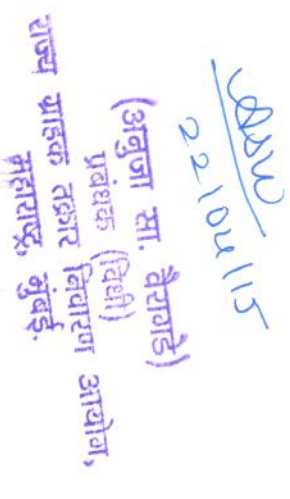 22/04/15
(अनुजा सा. बैरागडे)
प्रबंधक (विधी)
राज्य ग्राहक तक्रार निवारण आयोग,
महाराष्ट्र, मुंबई.